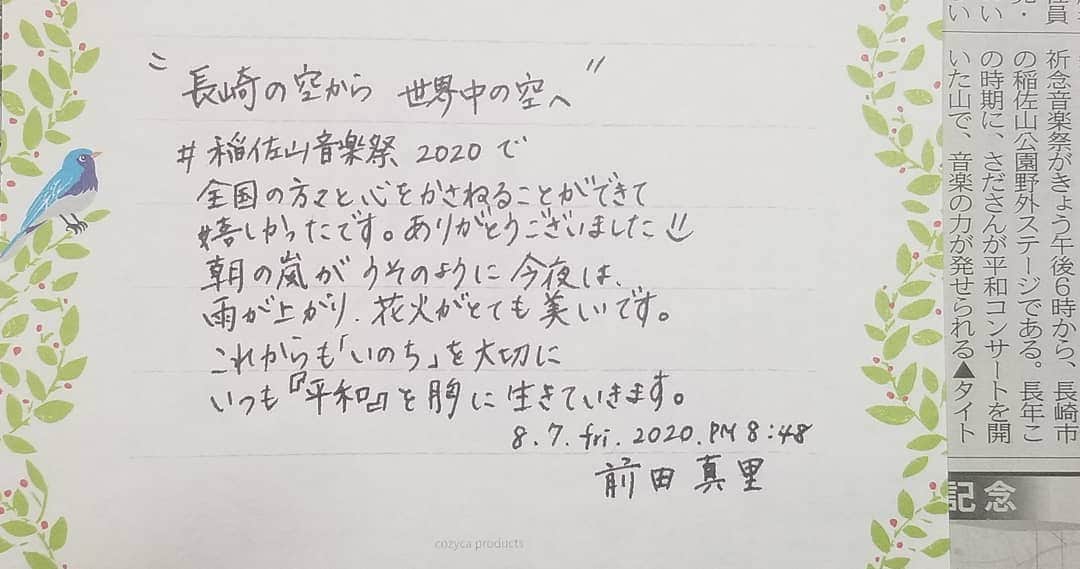 "長崎の空から 世界中の空へ"
#稲佐山音楽祭 2020で
全国の方々と心をかさねることができて
嬉しかったです。ありがとうございました
朝の嵐がうそのように今夜は、
雨が上がり、花火がとても美しいです。
これからも「いのち」を大切に
いつも『平和』を胸に生きていきます。
8.7.fri.2020.PM 8:48
前田真里
cozyca products
祈念音楽祭がきょう午後6時から、長崎市
の稲佐山公園野外ステージである。長年こ
の時期に、さださんが平和コンサートを開
いた山で、音楽の力が発せられる▲タイト
記念